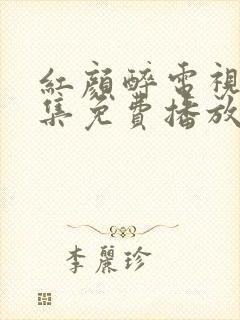 紅顏醉電視
集免費播放
李麗珍